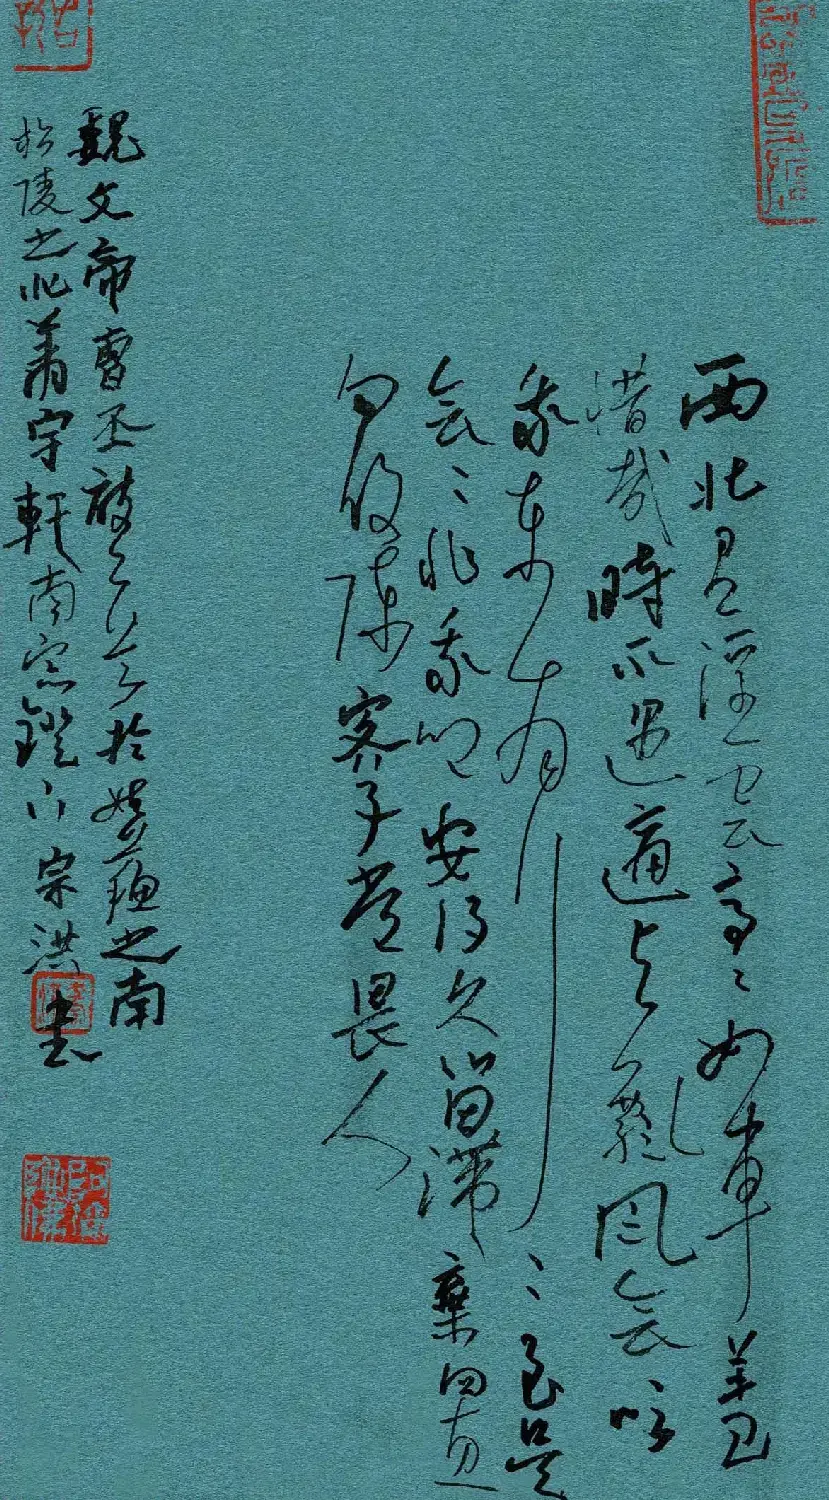 西北有浮雲亭〻如車蓋
惜哉時不遇適與飄風會吹
我東南行〻至吳
會〻非我鄉安得久留滯棄置
勿復陳客子常畏人
魏文帝曹丕於姑蘇之南
松陵之北蕭宇軒南窗鐙下宗洪書